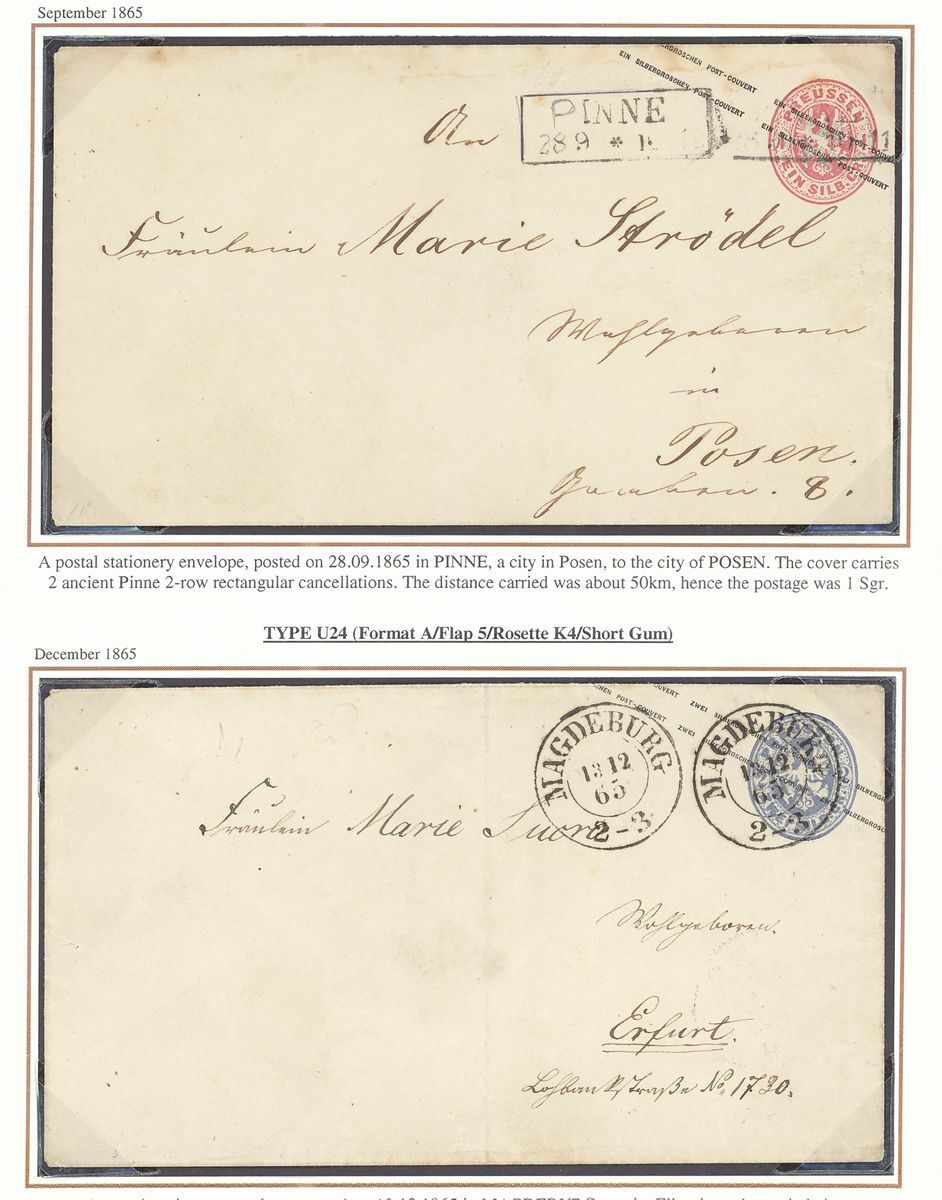 September 1865
SILBERGROSCHEN POST-COUVERT
EIN SILBERGROSCHEN POST-COUVERT
EIN SILBERGROSCHEN POST-COUVERT
EIN SILBERGROSCHEN POST-COUVERT
PREUSSEN
EIN SILB. GR.
PINNE
28 9 *
An
Fräulein Marie Strödel
Wohlgeboren
in
Posen.
8.
A postal stationery envelope, posted on 28.09.1865 in PINNE, a city in Posen, to the city of POSEN. The cover carries
2 ancient Pinne 2-row rectangular cancellations. The distance carried was about 50km, hence the postage was 1 Sgr.
TYPE U24 (Format A/Flap 5/Rosette K4/Short Gum)
December 1865
POST-COUVERT ZWEI
POST-COUVERT ZWEI
MAGDEBURG
13 12
65
2-3
MAGDEBURG
13 12
65
2-3
Fräulein Marie
Wohlgeboren.
Erfurt.
Lohbankstraße No. 1730.